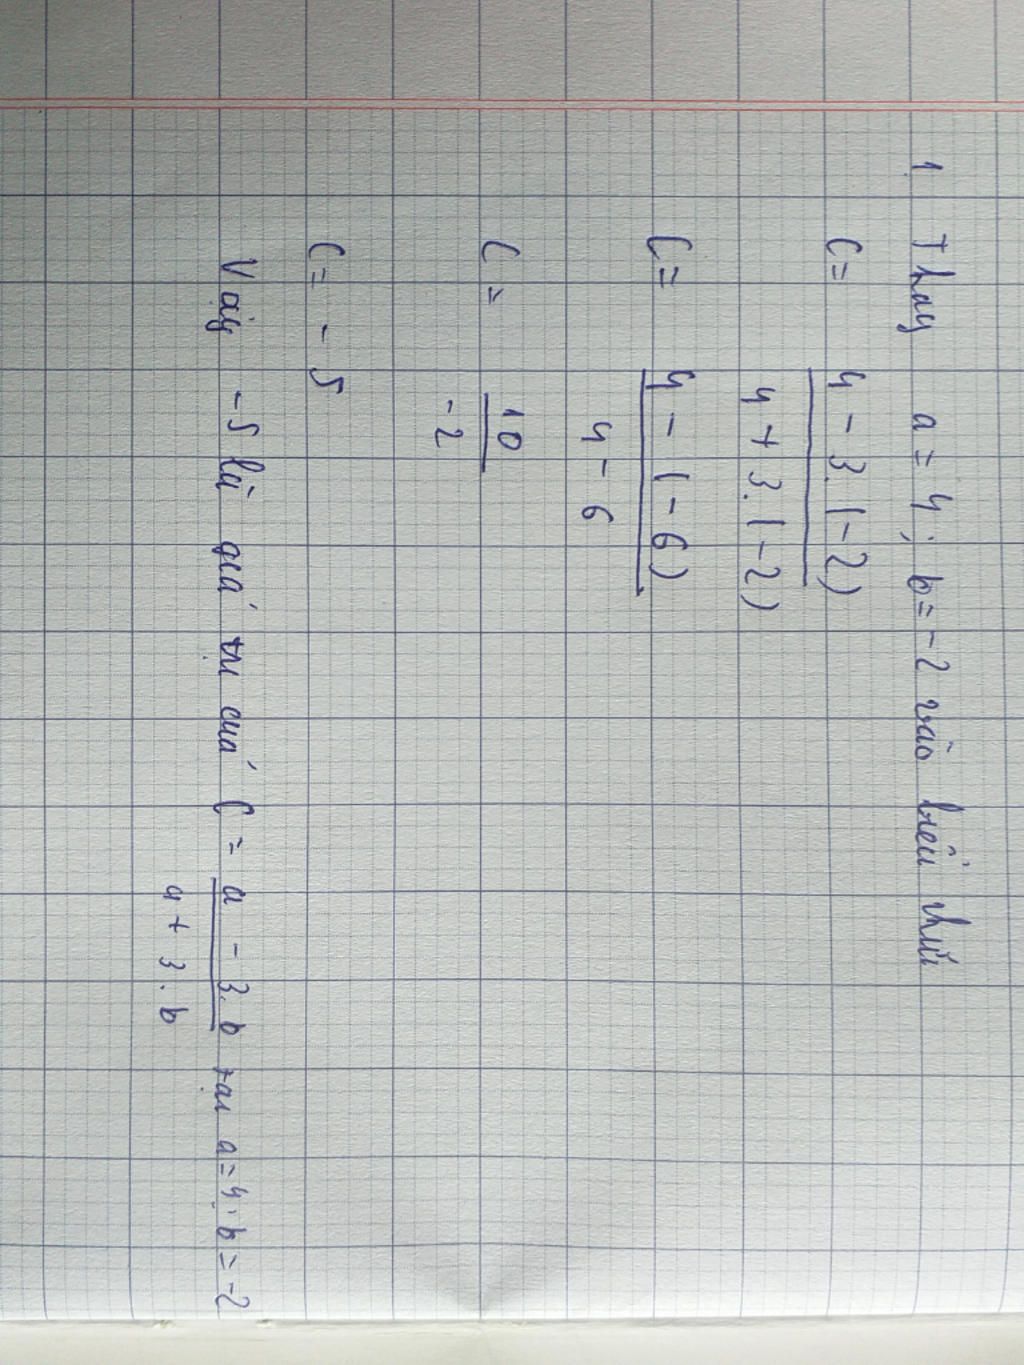 1 Thay a = 4 ; b = -2 vào biểu thức
C = 4 - 3.(-2)
4 + 3.(-2)
C = 4 - (-6)
4 - 6
C = 10
-2
C = -5
Vậy -5 là giá trị của C = a - 3.b tại a = 4 ; b = -2
a + 3.b